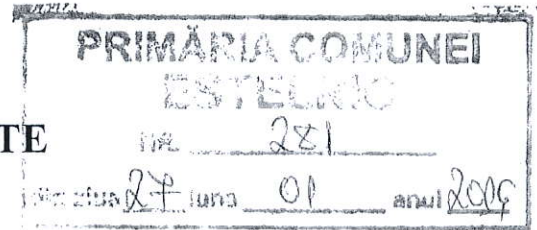 PRIMĂRIA COMUNEI
ESTELNIC
TE nr. 281
din ziua 27 luna 01 anul